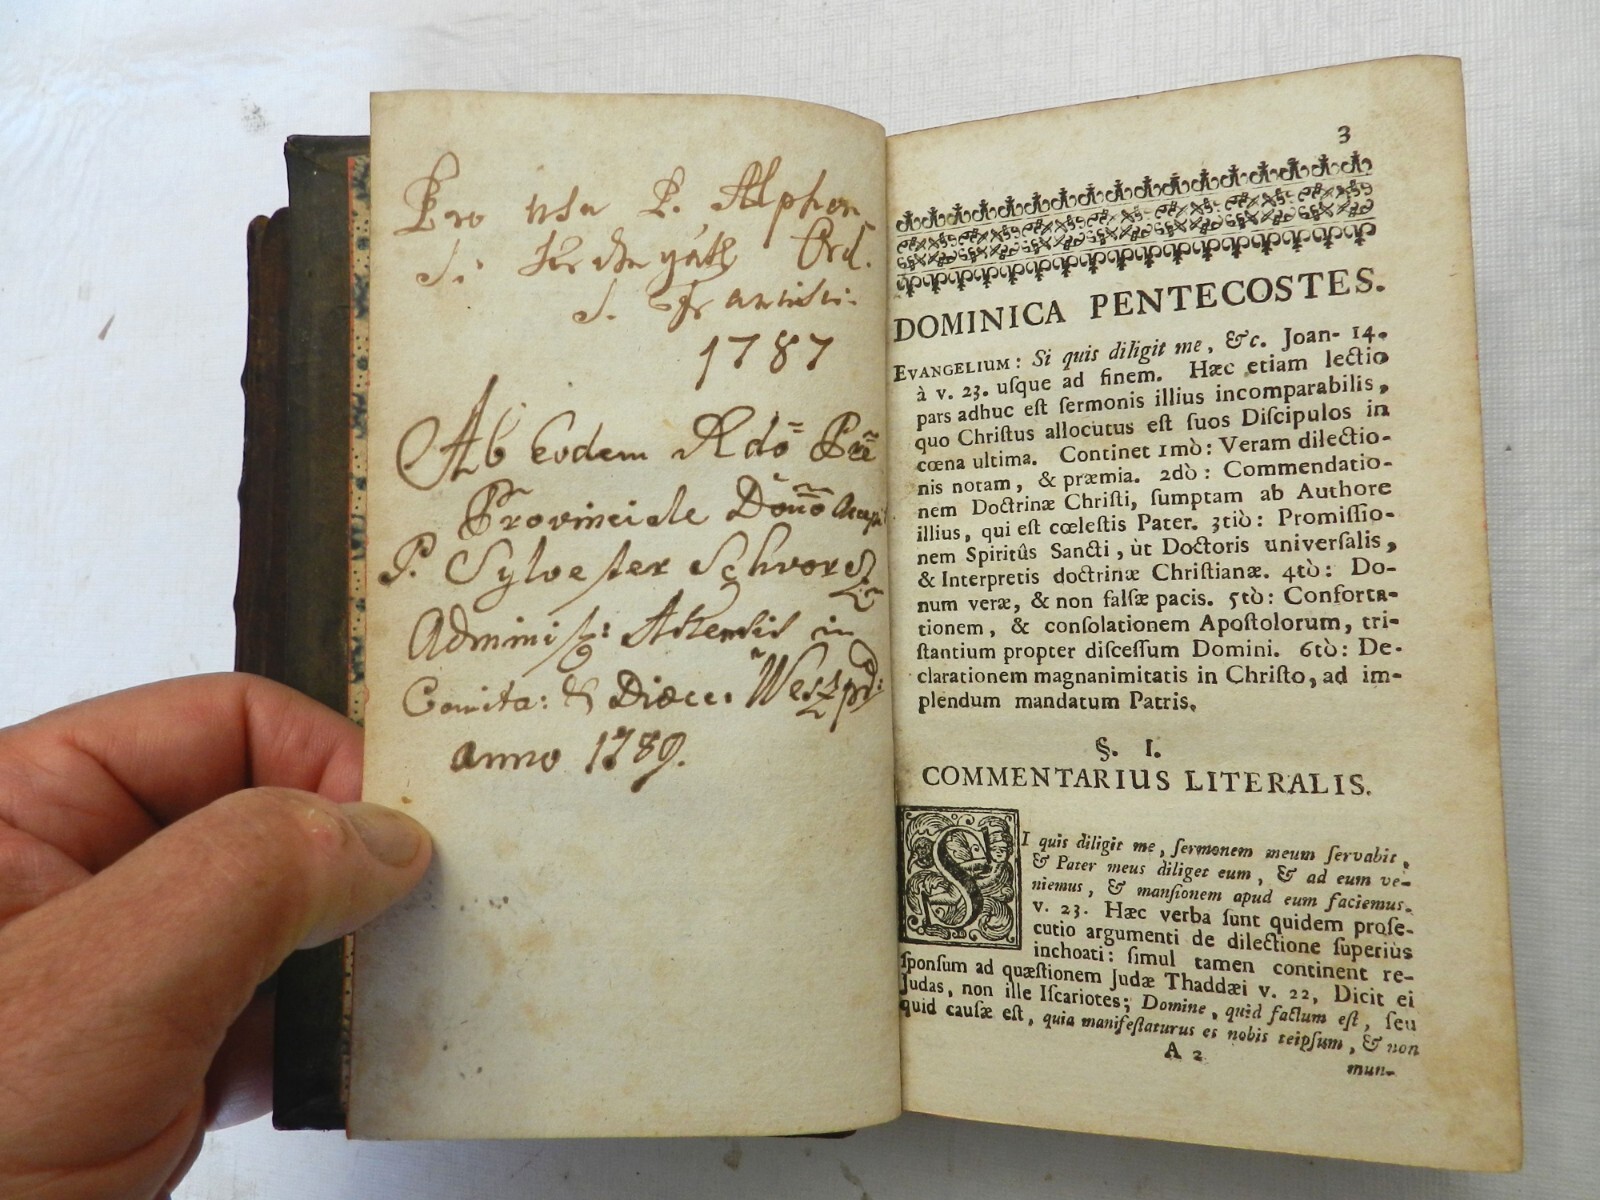 Pro usu P. Alphon
si Ord.
S. Francisci.
1787
Ab eodem Rdō Prē
Provinciale Dōnō Accep
P. Sylvester Schvorcz
Administ: Attensis in
Comita: & Diœce. Weszpr:
anno 1789.
3
DOMINICA PENTECOSTES.
EVANGELIUM: Si quis diligit me, &c. Joan- 14.
à v. 23. uſque ad finem. Hæc etiam lectio
pars adhuc eſt ſermonis illius incomparabilis,
quo Chriſtus allocutus eſt ſuos Diſcipulos in
cœna ultima. Continet 1mò: Veram dilectio-
nis notam, & præmia. 2dò: Commendatio-
nem Doctrinæ Chriſti, ſumptam ab Authore
illius, qui eſt cœleſtis Pater. 3tiò: Promiſſio-
nem Spiritûs Sancti, ùt Doctoris univerſalis,
& Interpretis doctrinæ Chriſtianæ. 4tò: Do-
num veræ, & non falſæ pacis. 5tò: Conforta-
tionem, & conſolationem Apoſtolorum, tri-
ſtantium propter diſceſſum Domini. 6tò: De-
clarationem magnanimitatis in Chriſto, ad im-
plendum mandatum Patris.
§. I.
COMMENTARIUS LITERALIS.
SI quis diligit me, ſermonem meum ſervabit,
& Pater meus diliget eum, & ad eum ve-
niemus, & manſionem apud eum faciemus.
v. 23. Hæc verba ſunt quidem proſe-
cutio argumenti de dilectione ſuperiùs
inchoati: ſimul tamen continent re-
ſponſum ad quæſtionem Judæ Thaddæi v. 22, Dicit ei
Judas, non ille Iſcariotes; Domine, quid factum eſt, ſeu
quid cauſæ eſt, quia manifeſtaturus es nobis teipſum, & non
A 2
mun-